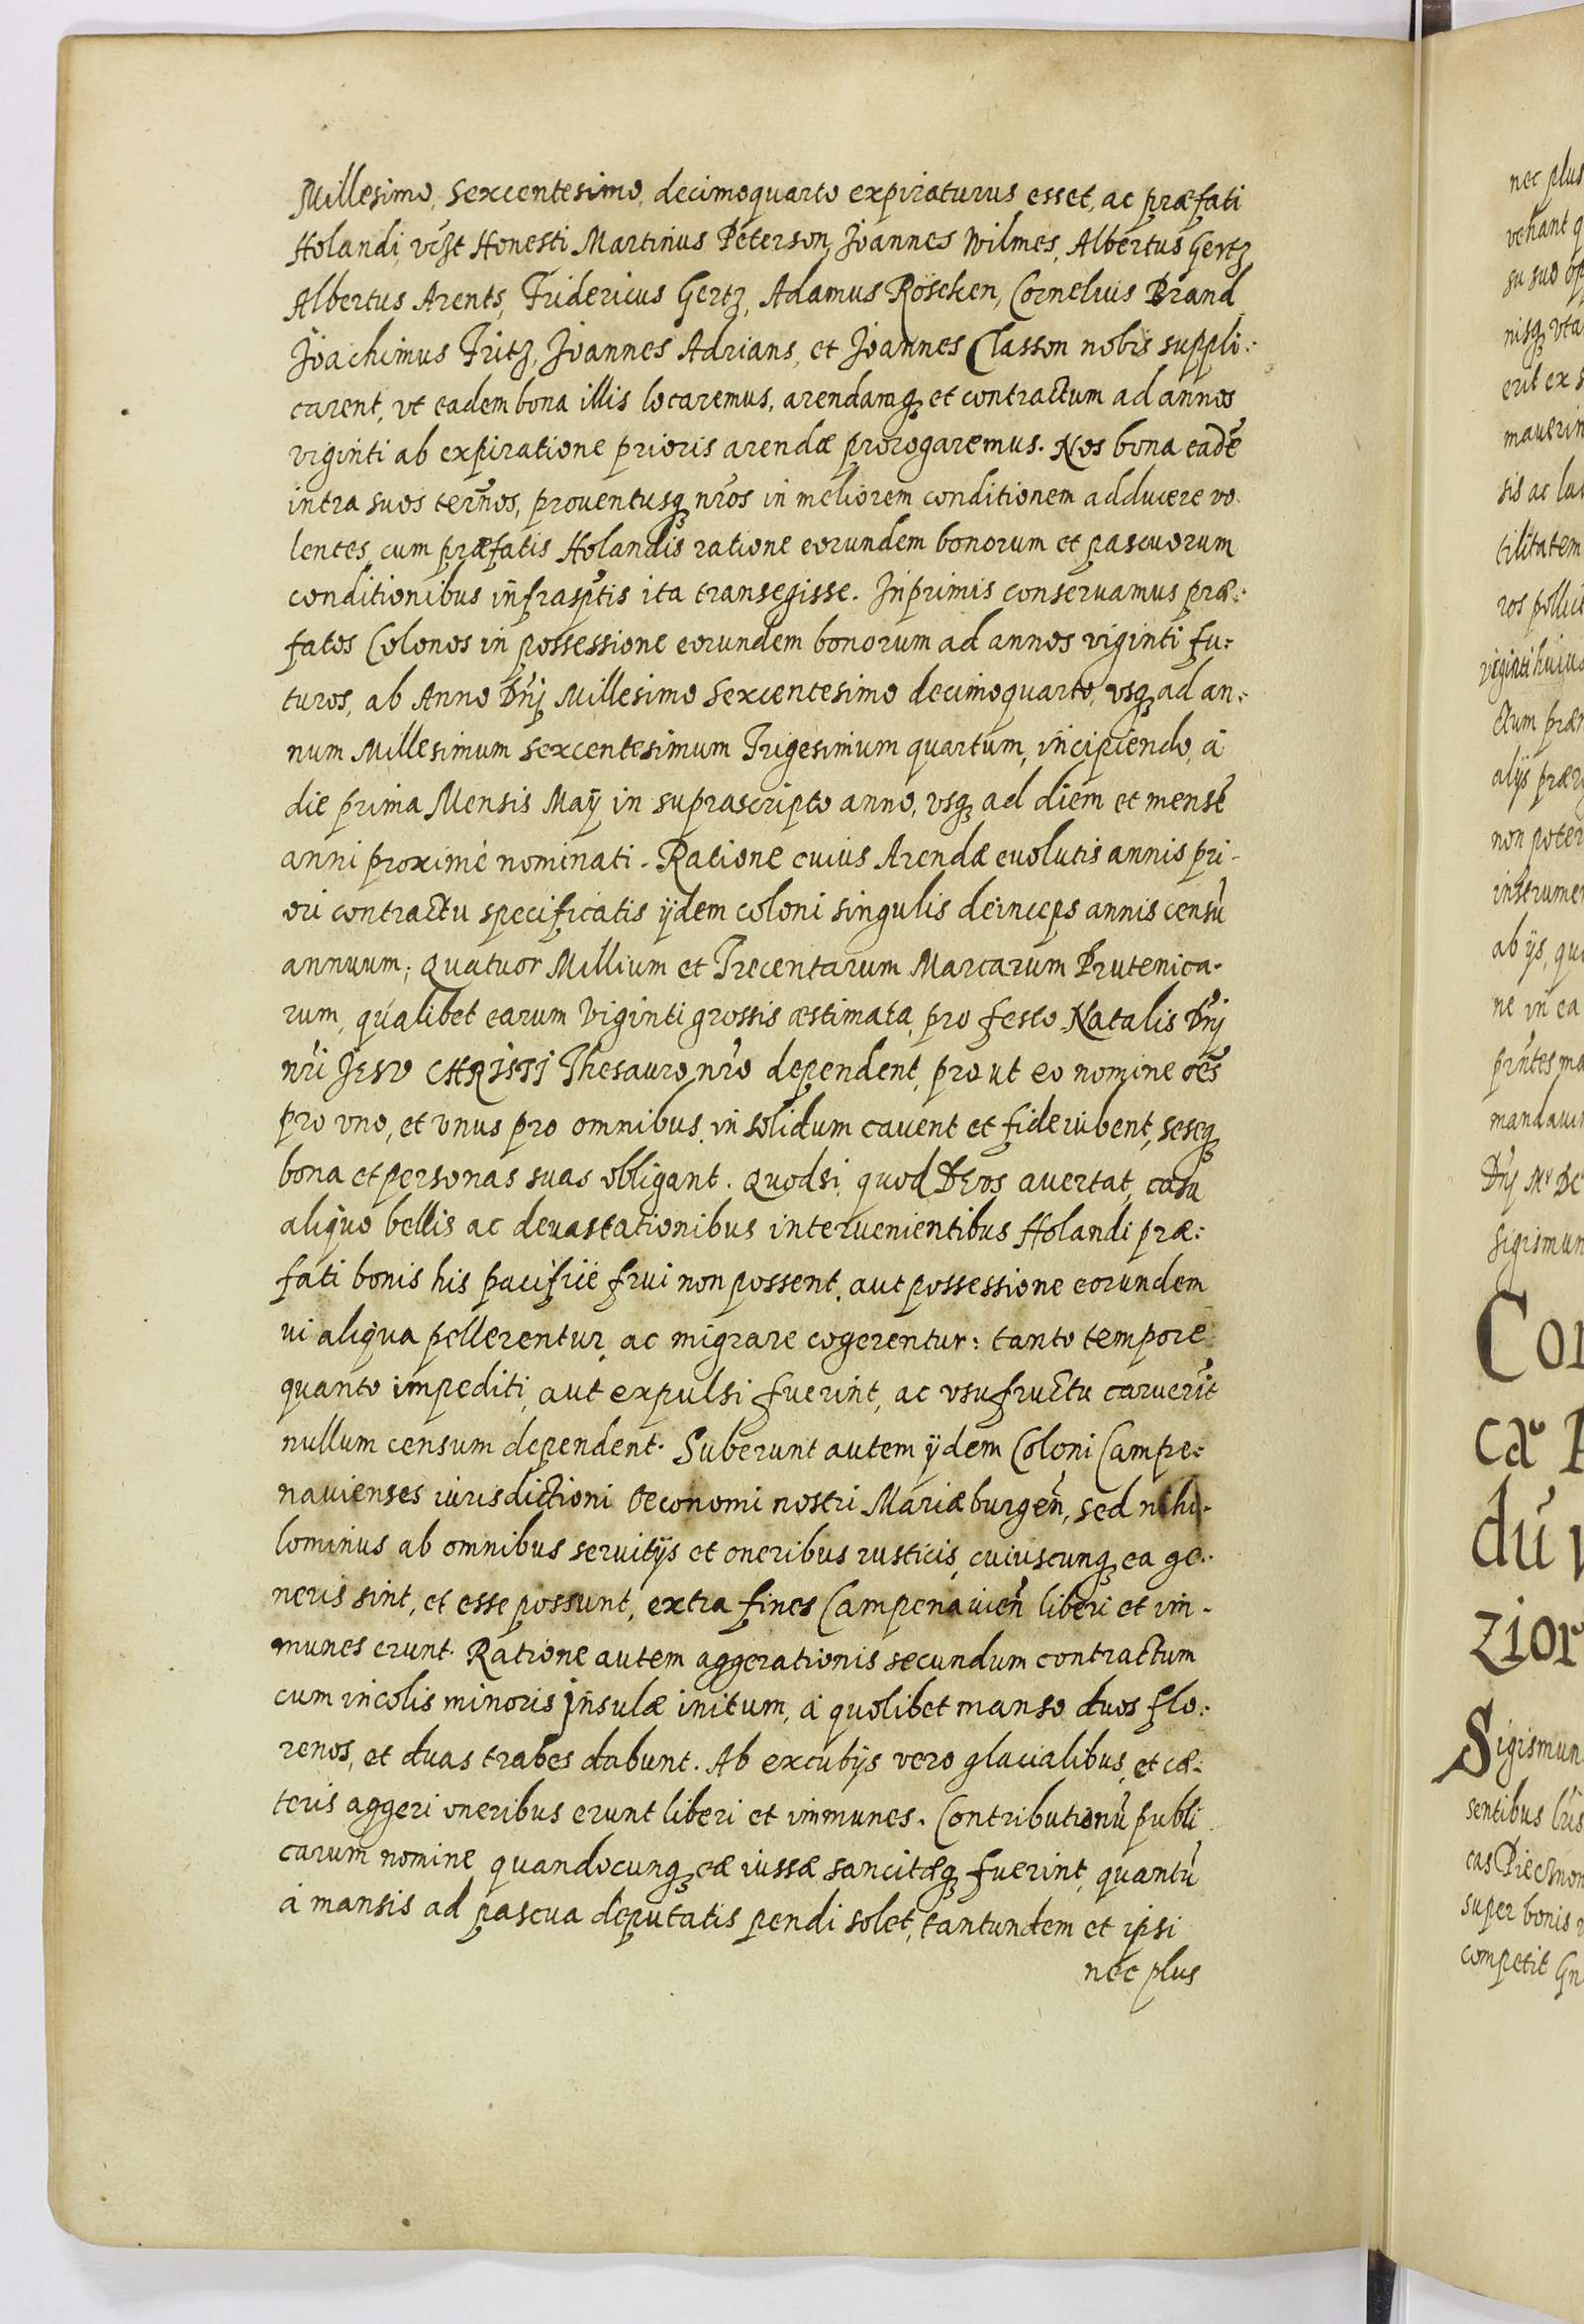 Millesimo, Sexcentesimo, decimoquarto expiraturus esset, ac præfati
Holandi, vczt Honesti Martinus Peterson, Joannes Wilmes, Albertus Gertz
Albertus Arents, Fridericus Gertz, Adamus Röscken, Cornelius Brand
Joachimus Fritz, Joannes Adrians, et Joannes Classon nobis suppli:
carent, vt eadem bona illis locaremus, arendamq̨ et contractum ad annos
viginti ab expiratione prioris arendæ prorogaremus. Nos bona eadē
intra suos termos, prouentusq̨ nr̄os in meliorem conditionem adducere vo.
lentes, cum præfatis Holandis ratione eorundem bonorum et pascuorum
conditionibus infrasptis ita transegisse. Inprimis conseruamus præ:
fatos Colonos in possessione eorundem bonorum ad annos viginti fu:
turos, ab Anno Dn̄j Millesimo Sexcentesimo decimoquarto, vsq̨ ad an:
num Millesimum Sexcentesimum Trigesimum quartum, incipiendo, à
die prima Mensis Maÿ in suprascripto anno, vsq̨ ad diem et mensē
anni proximè nominati. Ratione cuius Arendæ euolutis annis pri-
ori contractu specificatis ÿdem coloni singulis deinceps annis censū
annuum; Quatuor Millium et Trecentarum Marcarum Prutenica-
rum, qualibet earum Viginti grossis æstimata, pro festo Natalis Dn̄j
nr̄i JESV CHRISTI Thesauro nr̄o dependent, prout eo nomine oēs
pro vno, et vnus pro omnibus in solidum cauent et fideiubent, seseq̨
bona et personas suas obligant. Quodsi, quod DEVS auertat, casu
aliquo bellis ac deuastationibus interuenientibus Holandi præ:
fati bonis his pacificè frui non possent, aut possessione eorundem
vi aliqua pellerentur, ac migrare cogerentur: tanto tempore
quanto impediti, aut expulsi fuerint, ac vsufructu caruerīt
nullum censum dependent. Suberunt autem ÿdem Coloni Campe:
nauienses iurisdictioni Oeconomi nostri Mariæburgen̄, sed nihi-
lominus ab omnibus seruitijs et oneribus rusticis, cuiuscunq̨ ea ge:
neris sint, et esse possunt, extra fines Campenauien̄ liberi et im-
munes erunt. Ratione autem aggerationis secundum contractum
cum incolis minoris Insulæ initum, à quolibet manso duos flo:
renos, et duas trabes dabunt. Ab excubijs vero glacialibus, et cæ:
teris aggeri oneribus erunt liberi et immunes. Contributionū publi
carum nomine quandocunq̨ eæ iussæ sancitæq̨ fuerint, quantū
à mansis ad pascua deputatis pendi solet, tantundem et ipsi
nec plus
nec plus
vehant q
su suo op
nisq̨ vta
erit ex s
mauerin
sis ac lu
tilitatem
ros pollici
viginti huius
ctum præ
alijs præ
non poter
instrumen
ab ijs, qu
ne in ea
pr̄ntes ma
mandaui
Dn̄j Mº DC
Sigismun
Con
ca P
dū
zior
Sigismun
sentibus
cas
super bonis
competit Gn